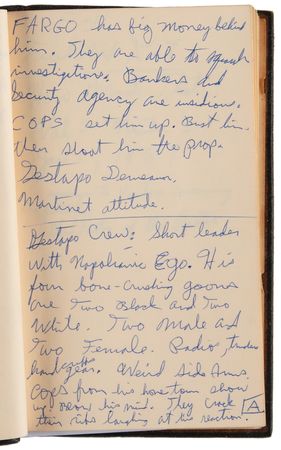 FARGO has big money behind
him. They are able to squash
investigations. Bankers and
security agency are insidious.
COPS set him up. Bust him.
then shoot him the prop.
Gestapo Demeanor.
Martinet attitude.
Gestapo Crew: Short leader
with Napoleonic Ego. His
four bone-crushing goons
are two Black and two
White. Two male and
two Female. Radios,
hand gear. Weird side Arms.
COPS from his hometown show
up. his mind. They crack
their ribs laughing at his reaction.
A